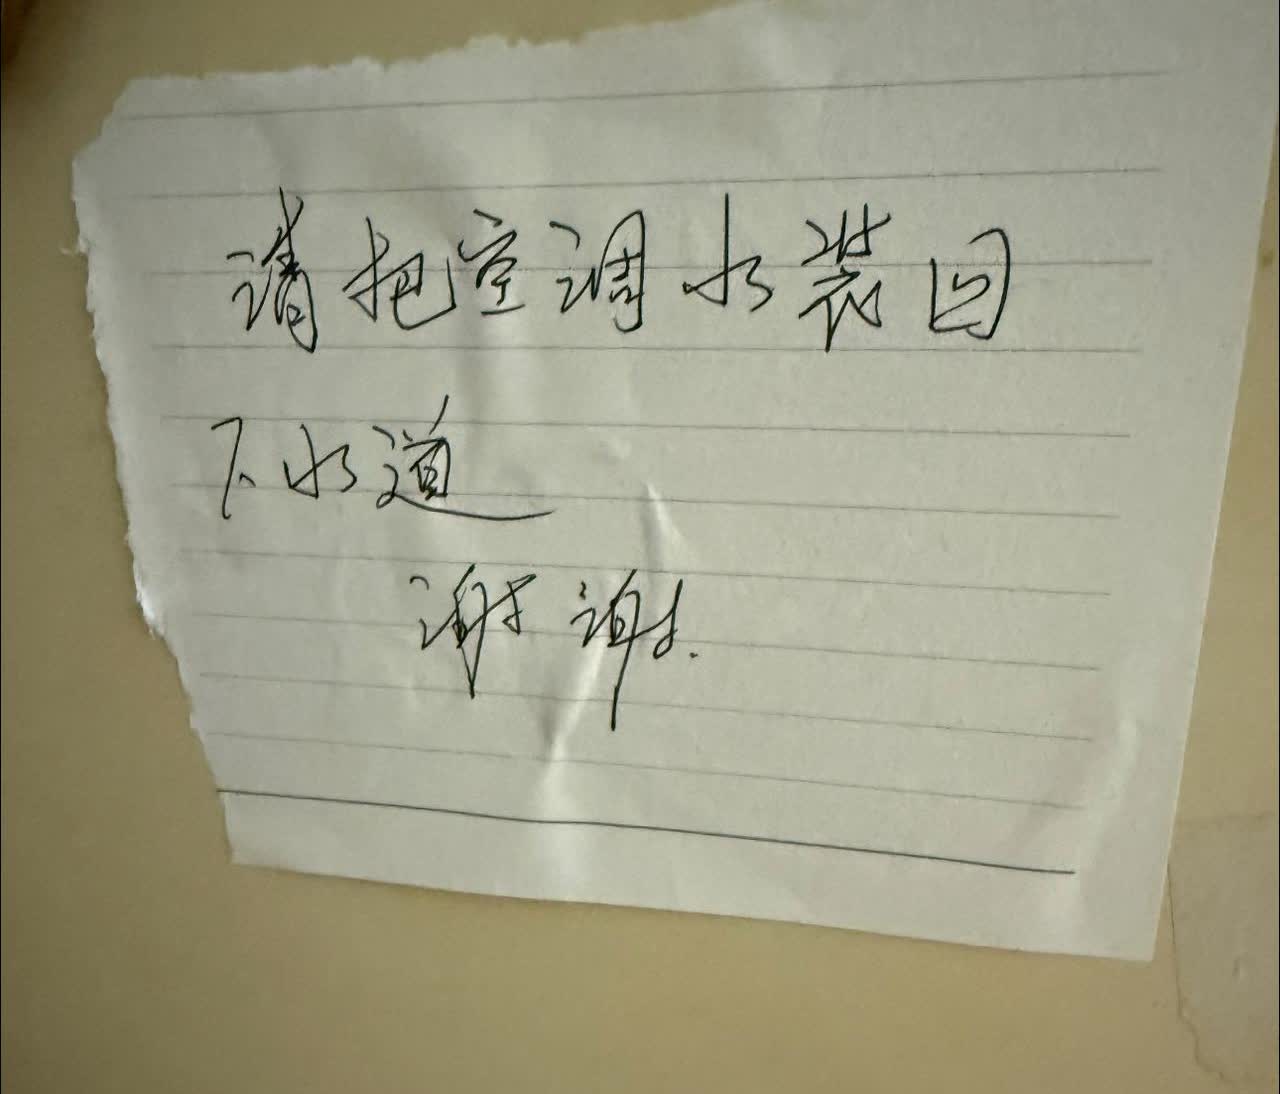 请把空调水装回
下水道
谢谢.